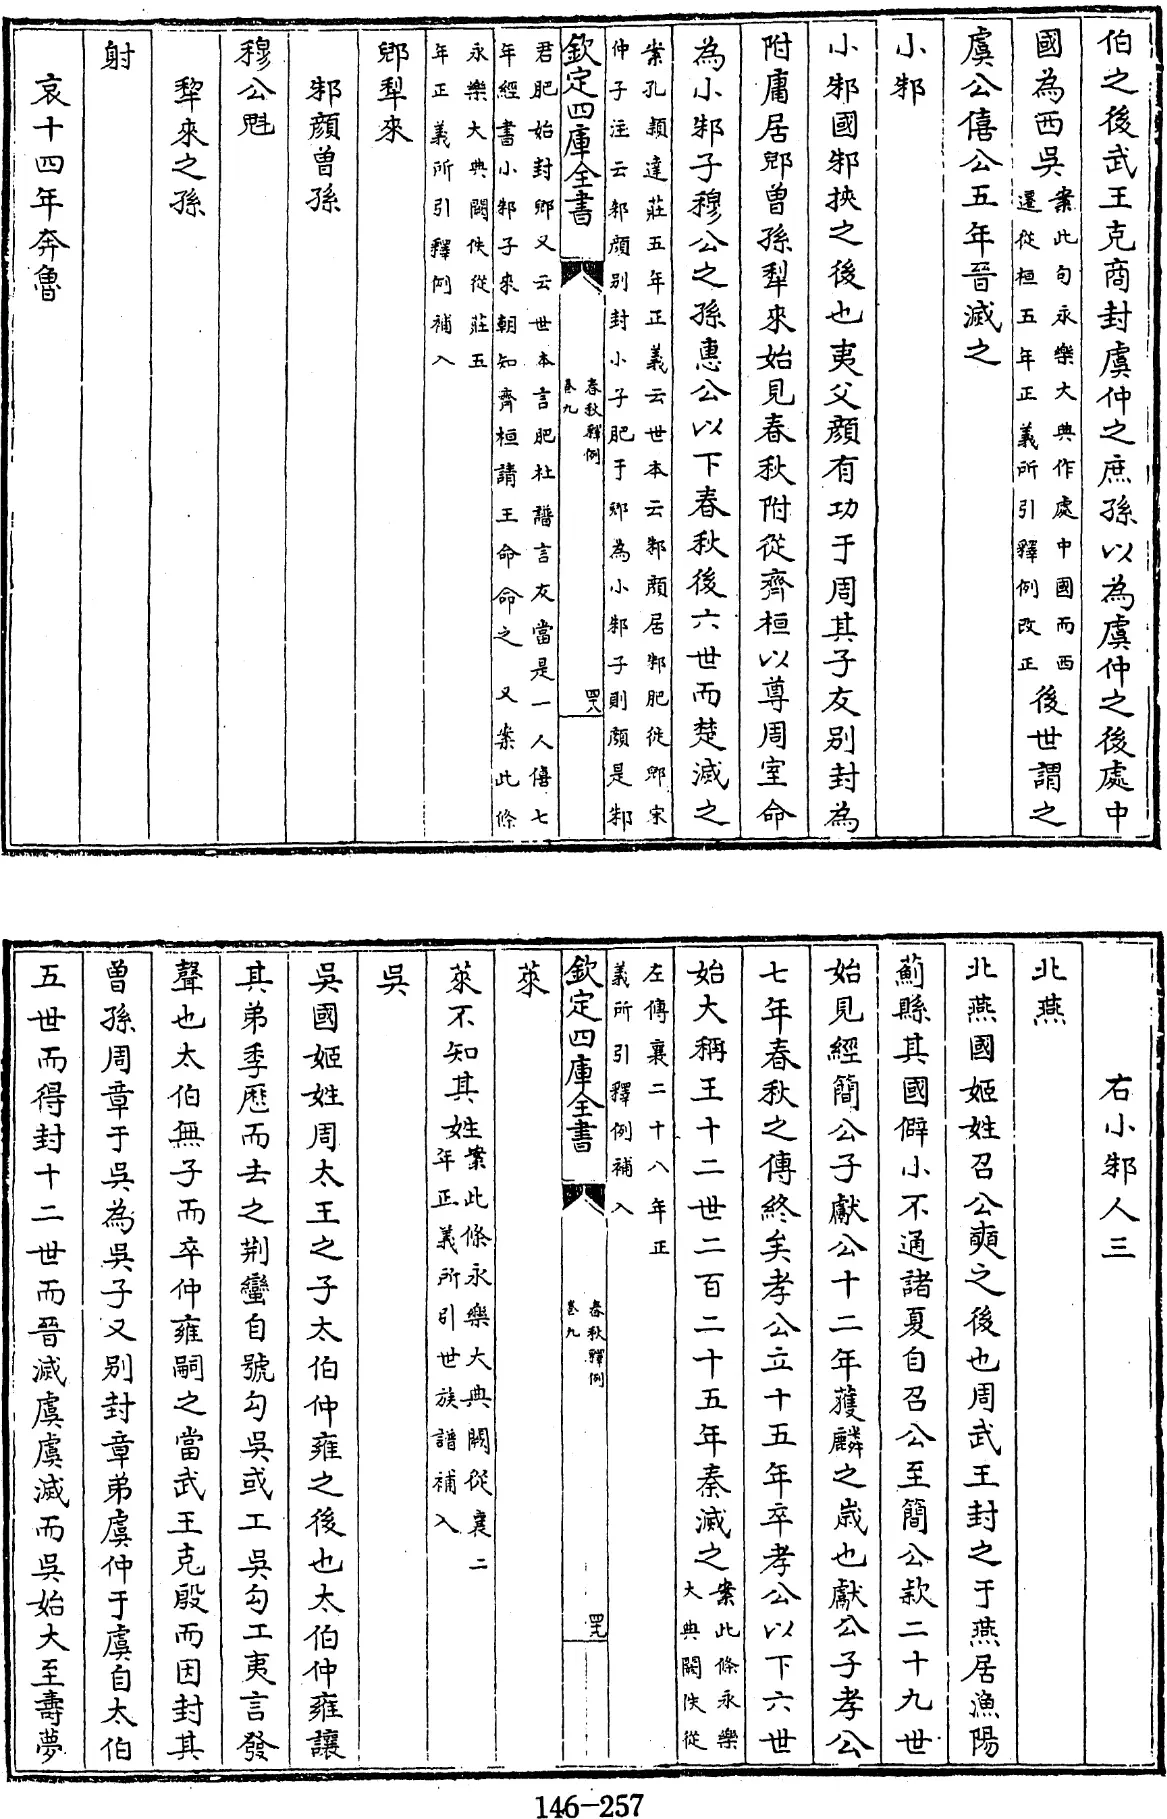 伯之後武王克商封虞仲之庶孫以為虞仲之後處中
國為西吳案此句永樂大典作處中國而西遷從桓五年正義所引釋例改正後世謂之
虞公僖公五年晉滅之
小邾
小邾國邾挾之後也夷父顔有功于周其子友別封為
附庸居郳曾孫犁来始見春秋附從齊桓以尊周室命
為小邾子穆公之孫惠公以下春秋後六世而楚滅之
案孔穎達莊五年正義云世本云邾顔居邾肥徙郳宋
仲子注云邾顔別封小子肥于郳為小邾子則顔是邾
欽定四庫全書
春秋釋例
卷九
四八
君肥始封郳又云世本言肥杜譜言友當是一人僖七
年經書小邾子來朝知齊桓請王命命之 又案此條
永樂大典闕佚從莊五
年正義所引釋例補入
郳犁來
邾顔曾孫
穆公魁
犂來之孫
射
哀十四年奔魯
右小邾人三
北燕
北燕國姬姓召公奭之後也周武王封之于燕居漁陽
薊縣其國僻小不通諸夏自召公至簡公款二十九世
始見經簡公子獻公十二年獲麟之歲也獻公子孝公
七年春秋之傳終矣孝公立十五年卒孝公以下六世
始大稱王十二世二百二十五年秦滅之案此條永樂大典闕佚從
左傳襄二十八年正
義所引釋例補入
欽定四庫全書
春秋釋例
卷九
四九
萊
萊不知其姓案此條永樂大典闕從襄二年正義所引世族譜補入
吳
吳國姬姓周太王之子太伯仲雍之後也太伯仲雍讓
其弟季歷而去之荆蠻自號勾吳或工吳勾工夷言發
聲也太伯無子而卒仲雍嗣之當武王克殷而因封其
曾孫周章于吳為吳子又別封章弟虞仲于虞自太伯
五世而得封十二世而晉滅虞虞滅而吳始大至壽夢
146-257